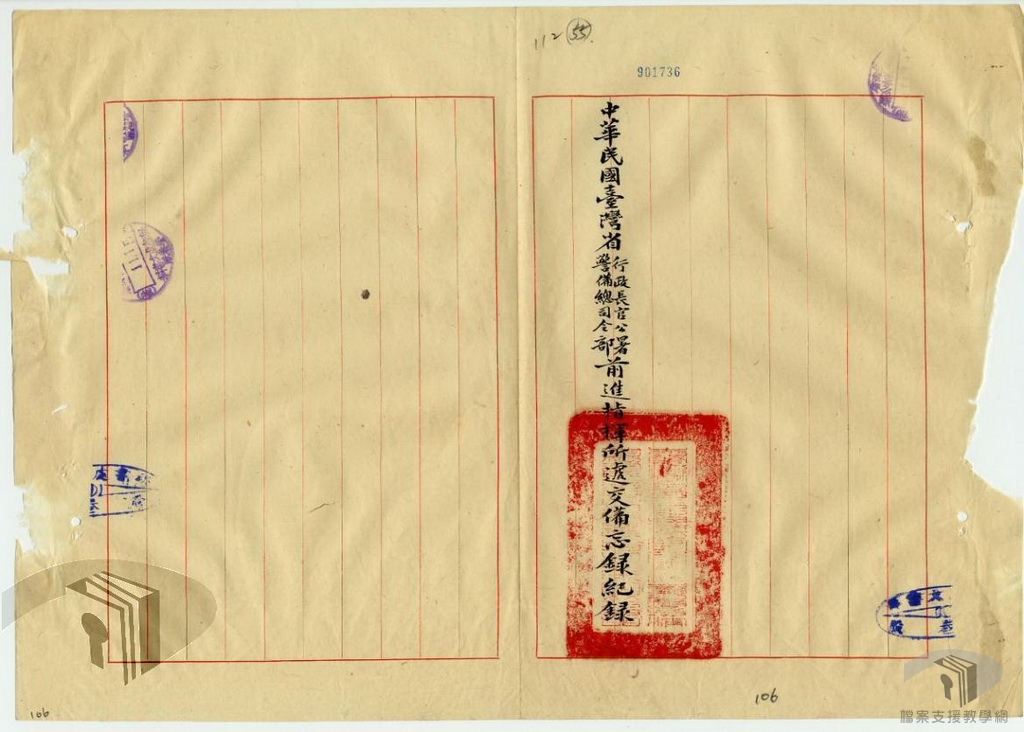 112 55
901736
中華民國臺灣省
行政長官公署
警備總司令部
前進指揮所遞交備忘錄紀錄
106
106
檔案支援教學網